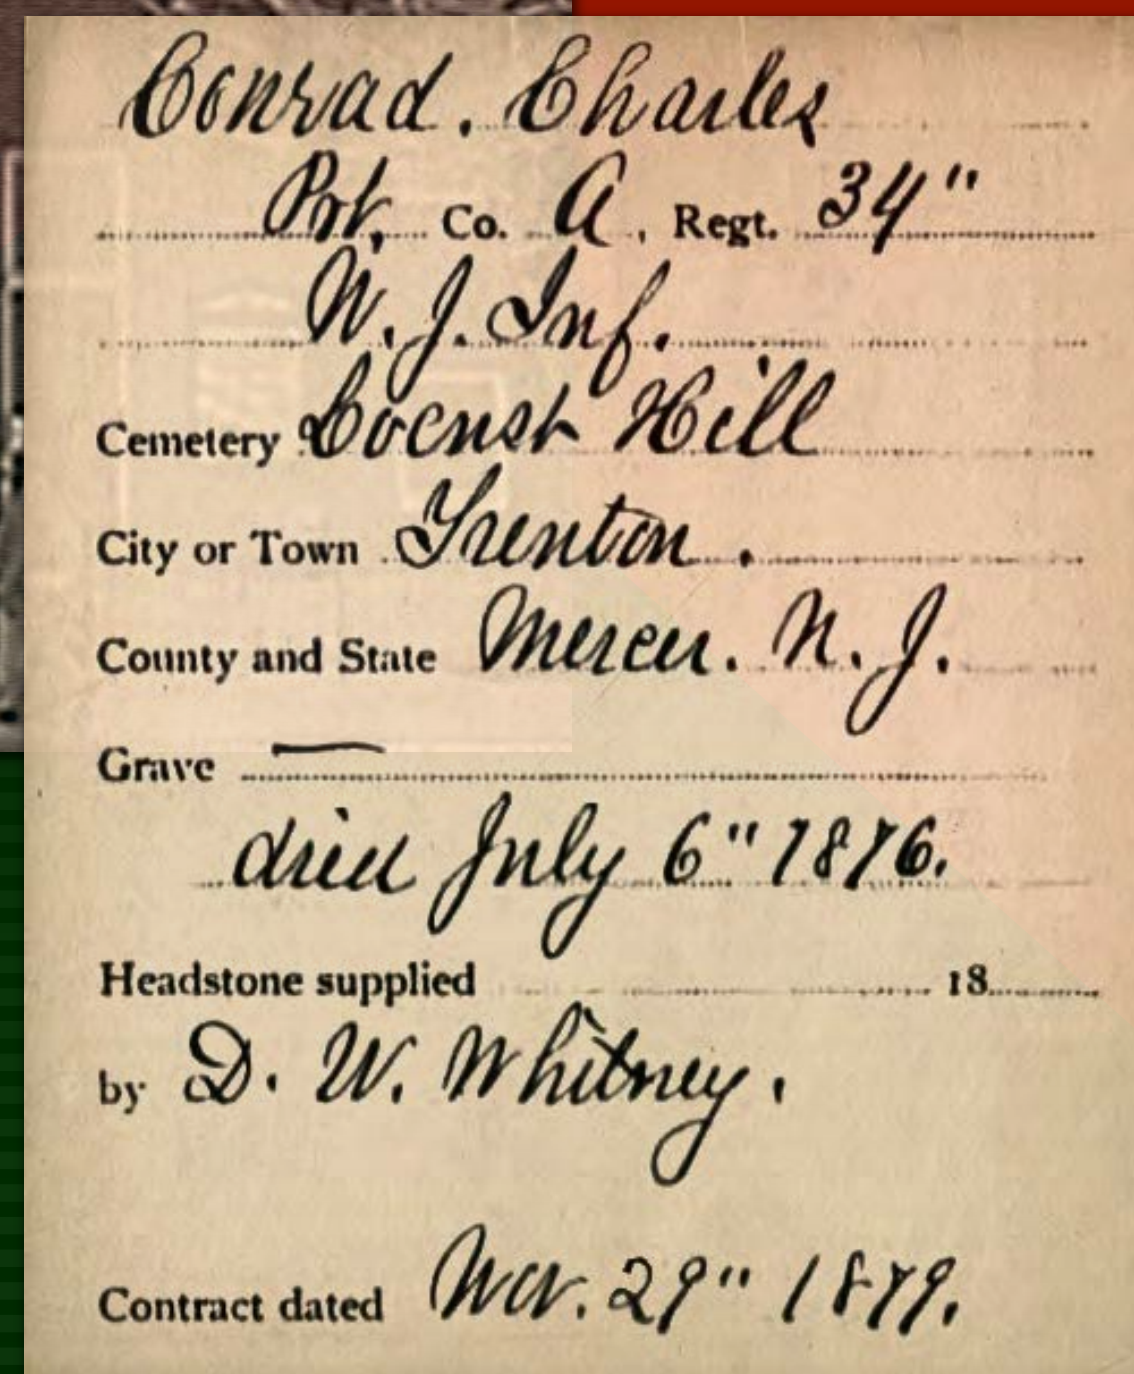 Conrad. Charles
Pvt, Co. A, Regt. 34"
N. J. Inf.
Cemetery Locust Hill
City or Town Trenton.
County and State Mercer. N. J.
Grave —
died July 6" 1876.
Headstone supplied 18
by D. W. Whitney.
Contract dated Nov. 29" 1879.